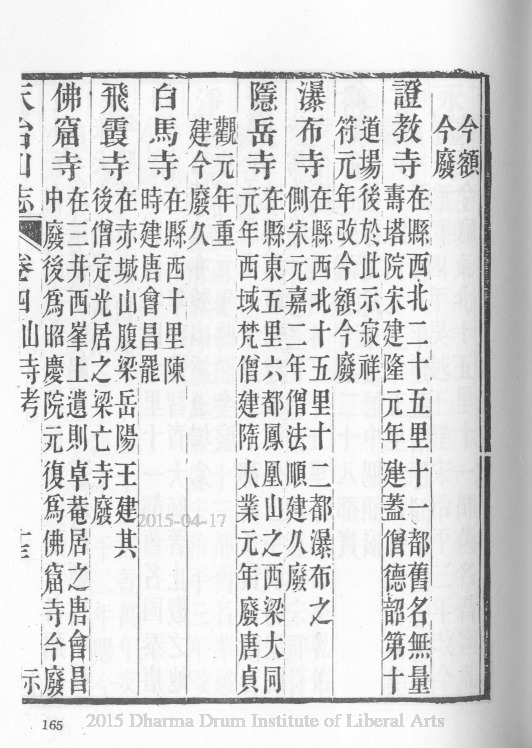 今額
今廢
證教寺 在縣西北二十五里十一都舊名無量
壽塔院宋建隆元年建蓋僧德韶第十
道場後於此示寂祥
符元年改今額今廢
瀑布寺 在縣西北十五里十二都瀑布之
側宋元嘉二年僧法順建久廢
隱岳寺 在縣東五里六都鳳凰山之西梁大同
元年西域梵僧建隋大業元年廢唐貞
觀元年重
建今廢久
白馬寺 在縣西十里陳
時建唐會昌罷
飛霞寺 在赤城山腹梁岳陽王建其
後僧定光居之梁亡寺廢
佛窟寺 在三井西峯上遺則卓菴居之唐會昌
中廢後爲昭慶院元復爲佛窟寺今廢
天台山志 卷四 寺考
2015-04-17
165
2015 Dharma Drum Institute of Liberal Arts